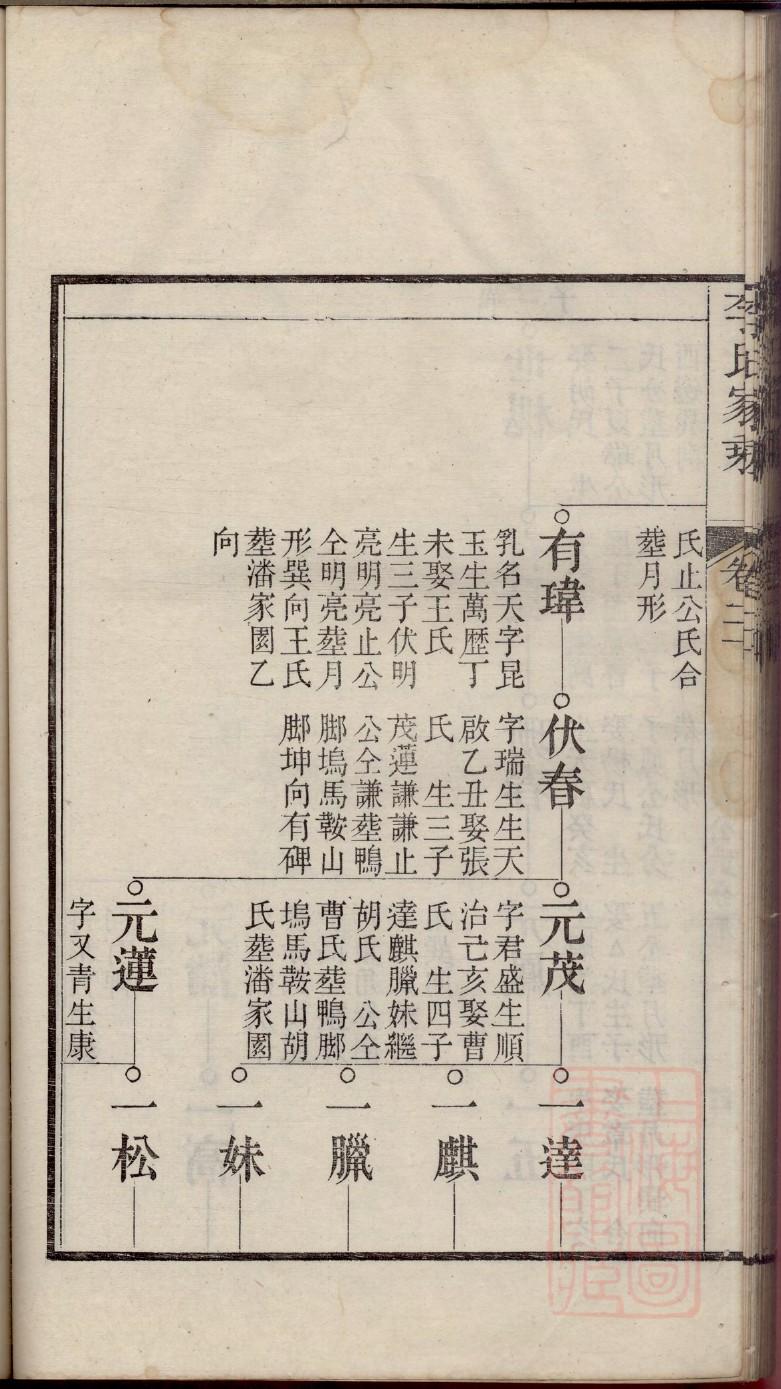 李氏家乘 卷二
氏止公氏合
塟月形
有瑋
乳名天字昆
玉生萬歷丁
未娶王氏
生三子伏明
亮明亮止公
仝明亮塟月
形巽向王氏
塟潘家園乙
向
伏春
字瑞生生天
啟乙丑娶張
氏 生三子
茂蓮謙謙止
公仝謙塟鴨
脚塢馬鞍山
脚坤向有碑
元茂
字君盛生順
治己亥娶曹
氏 生四子
達麒臘妹繼
胡氏 公仝
曹氏塟鴨脚
塢馬鞍山胡
氏塟潘家園
元蓮
字又青生康
一達
一麒
一臘
一妹
一松